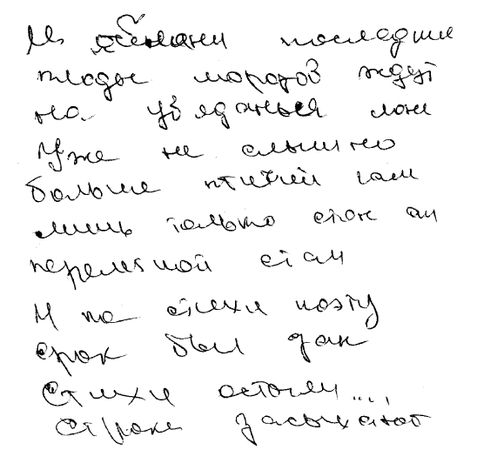 последние
плоды морозов ждут
на увяданья
Уже не слышно
больше птичий гам
лишь только стон
перелётной стаи
И на стихи поэту
срок был дан
Стихи остыли....
строки засыхают